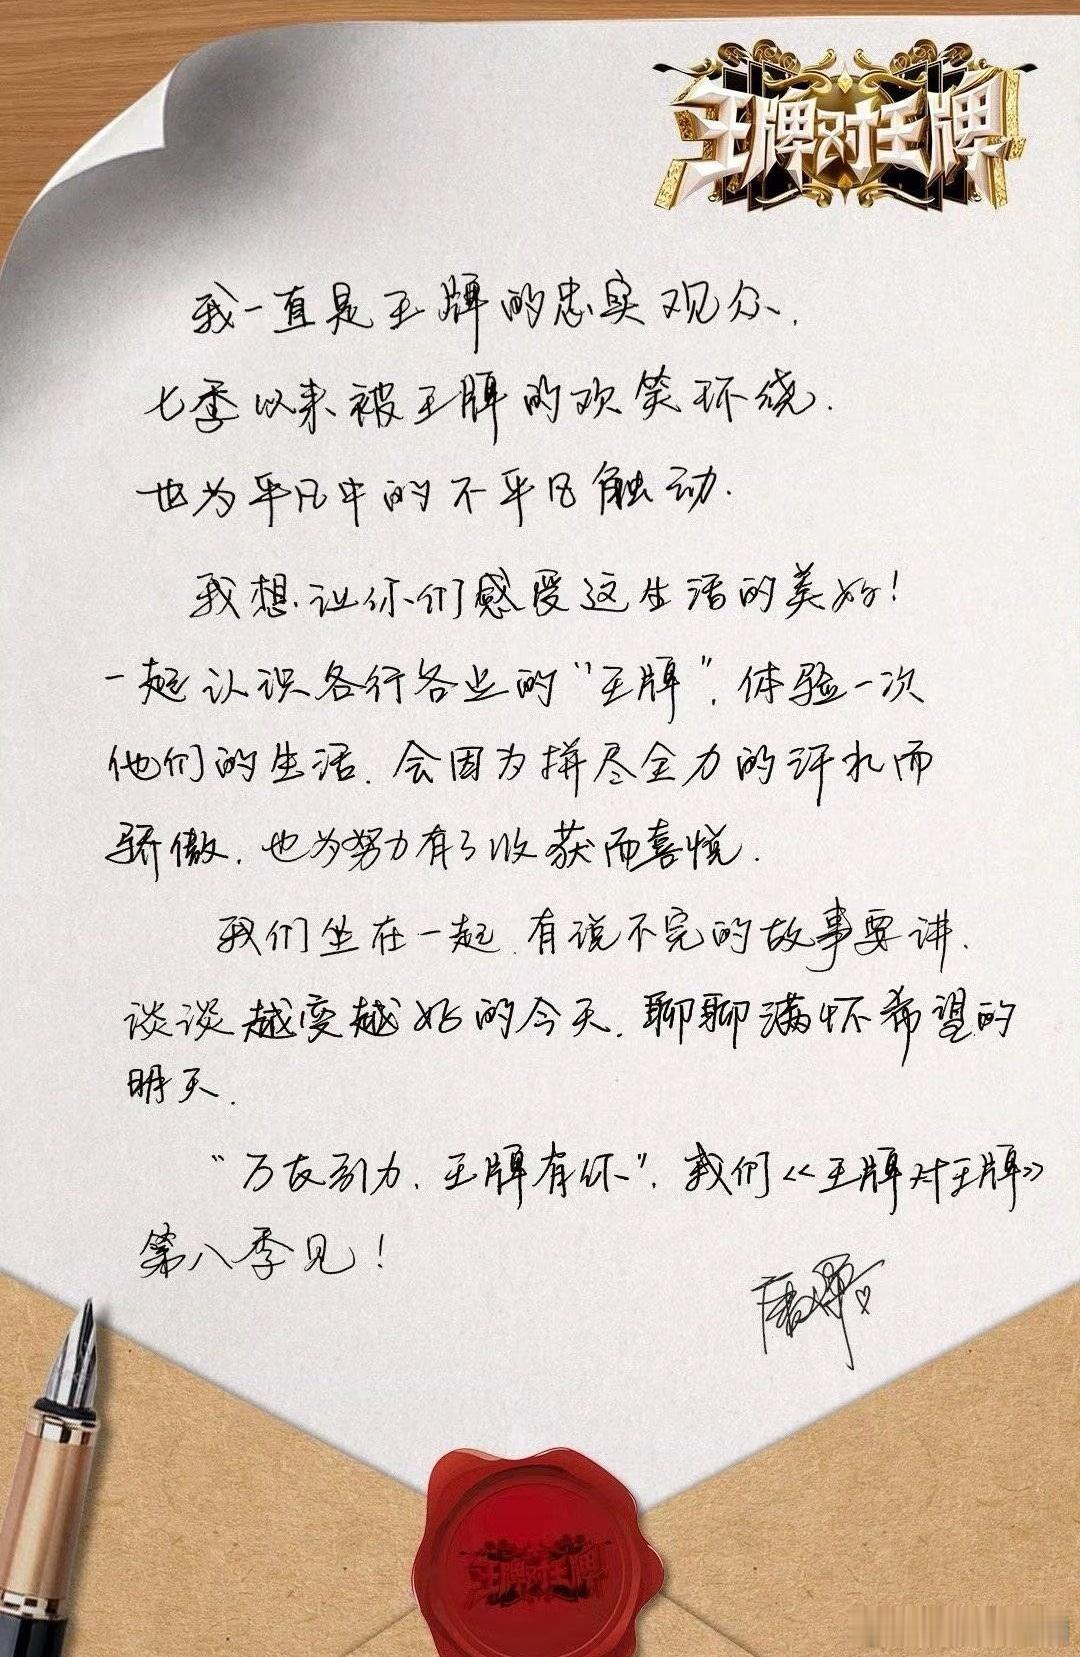 王牌对王牌
我一直是王牌的忠实观众.
七季以来被王牌的欢笑环绕.
也为平凡中的不平凡触动.
我想让你们感受这生活的美好!
一起认识各行各业的“王牌”,体验一次
他们的生活.会因为拼尽全力的汗水而
骄傲.也为努力有了收获而喜悦.
我们坐在一起.有说不完的故事要讲.
谈谈越变越好的今天.聊聊满怀希望的
明天.
“万友引力.王牌有你”.我们《王牌对王牌》
第八季见!
王牌对王牌